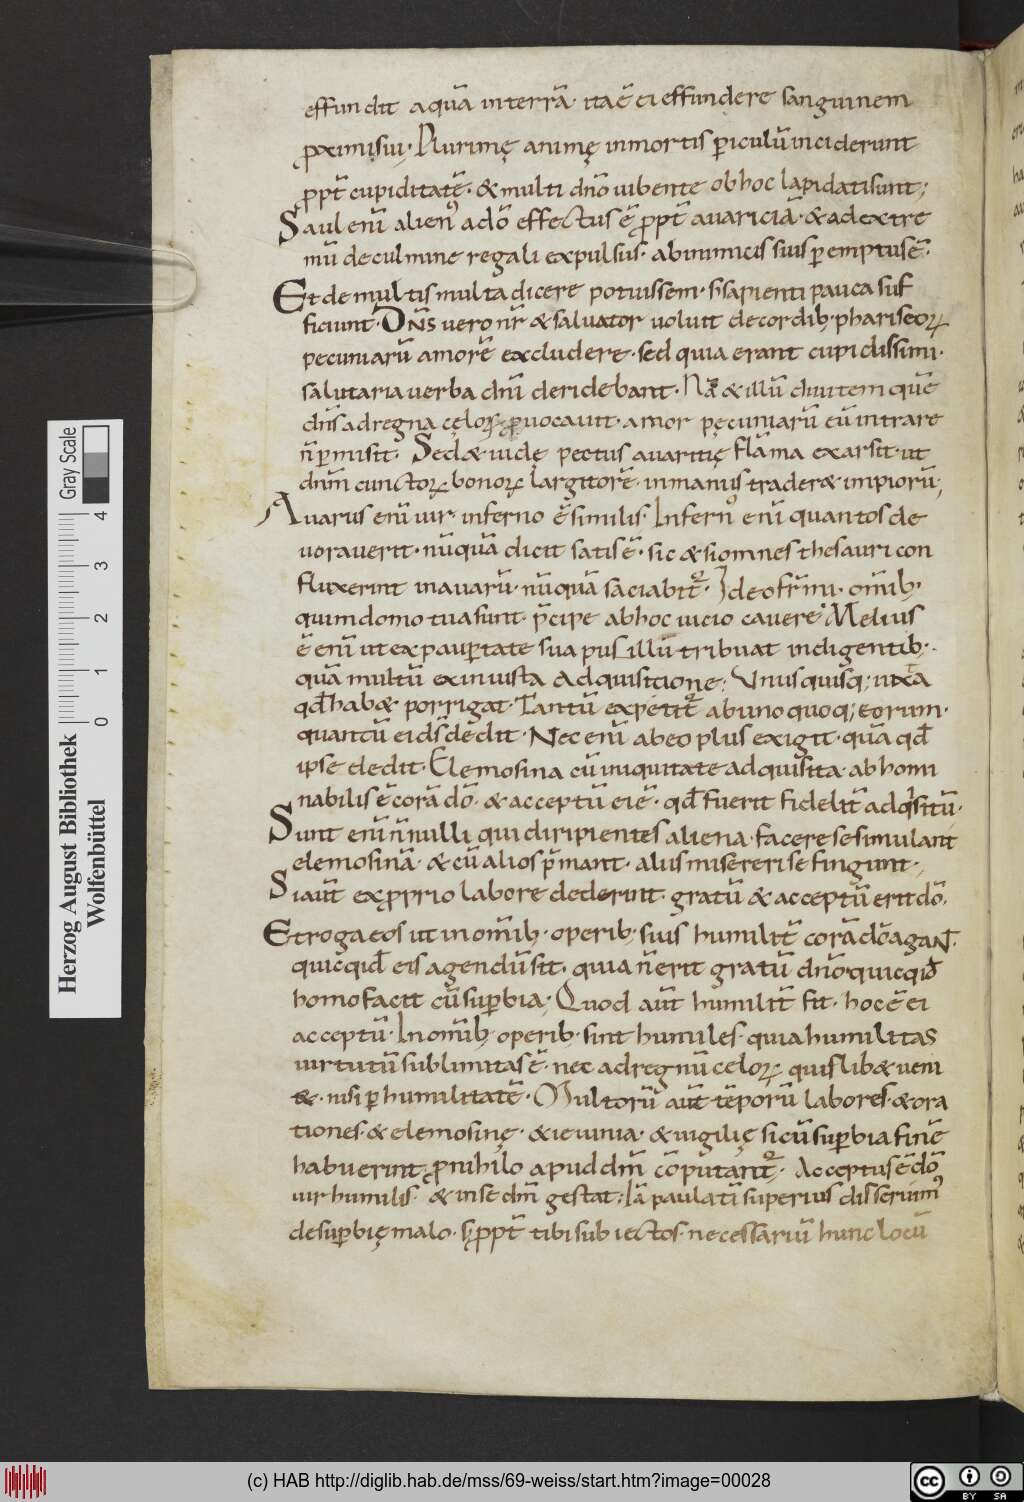 effundit aquā interrā· itaē ei effundere sanguinem
ꝓximisui· Plurimę animę inmortis ꝑiculū inciderunt
ꝓpt̄ cupiditatē· & multi dn̄o iubente obhoc lapidatisunt;
Saul enī alienꝰ adō effectus ē ꝓpt̄ auariciā· & adextre
mū deculmine regali expulsus· abinimicis suis ꝑemptus ē·
Et de multis multa dicere potuissem· s; sapienti pauca suf
ficiunt· Dn̄s uero nr̄ & saluator uoluit decordib; phariseoꝝ
pecuniarū amorē excludere· sed quia erant cupidissimi·
salutaria uerba dn̄i deridebant· Nā & illū diuitem quē
dn̄s adregna cęloꝝ ꝓuocauit· amor pecuniarū eū intrare
n̄ ꝑmisit· Sed & iudę pectus auaritię flāma exarsit· ut
dn̄m cunctoꝝ bonoꝝ largitorē· inmanus trader& impiorū;
Auarus enī uir· inferno ē similis· Infernꝰ enī quantos de
uorauerit· nūquā dicit satis ē· sic & si omnes thesauri con
fluxerint inauarū· nūquā saciabit̄· Ideo fr̄ mi· omīb;
qui indomo tua sunt· p̄cipe abhoc uicio cauere· Melius
ē enī ut ex pauꝑtate sua pusillū tribuat indigentib;·
quā multū exiniusta adquisitione; Vnusquisq; iuxta
qd̄ hab& porrigat· Tantū expetit̄ ab unoquoq; eorum·
quantū ei ds̄ dedit· Nec enī abeo plus exigit· quā qd̄
ipse dedit· Elemosina cū iniquitate adquisita· abhomi
nabilis ē corā dō· & acceptū ei ē· qd̄ fuerit fidelit̄ adq̇situ̅·
Sunt enī n̄nulli qui diripientes aliena· facere se simulant
elemosinā· & cū alios p̄mant· aliis misereri se fingunt·
Si aūt ex ꝓprio labore dederint· gratū & acceptū erit dō·
Et roga eos ut in omīb; operib; suis humilit̄ corā dō agant̄·
quicqid̄ eis agendū sit· quia n̄ erit gratū dn̄o quicqid̄
homo facit cū suꝑbia; Quod aūt humilit̄ fit· hoc ē ei
acceptū· In omīb; operib; sint humiles· quia humilitas
uirtutū sublimitas ē· nec adregnū celoꝝ quislib& ueni
et· nisi ꝑ humilitatē· Multorū aūt tēporū labores· & ora
tiones· & elemosinę· & ieiunia· & uigilię si cū suꝑbia finē
habuerint· ꝓ nihilo apud dm̄ cōputant̄· Acceptus ē dō
uir humilis· & in se dm̄ gestat; Iā paulatī superius disseruimꝰ
desuꝑbię malo· s; ꝓpt̄ tibi subiectos· necessariū hunc locū
Herzog August Bibliothek
Wolfenbüttel
Gray Scale
0 1 2 3 4
(c) HAB http://diglib.hab.de/mss/69-weiss/start.htm?image=00028
cc BY SA